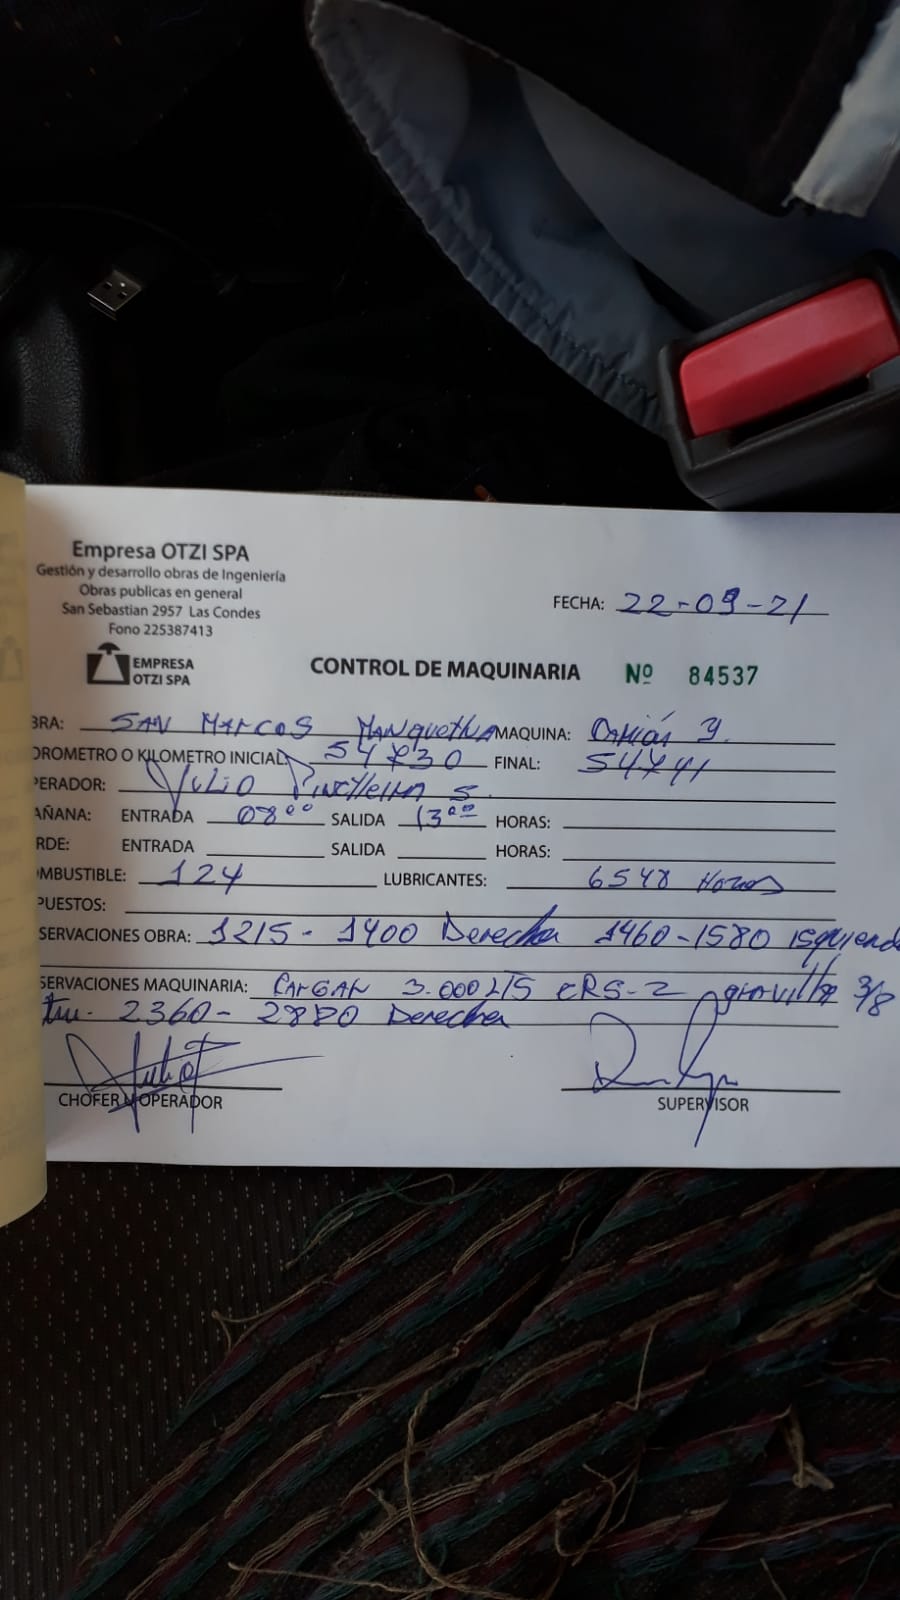 Empresa OTZI SPA
Gestión y desarrollo obras de Ingeniería
Obras publicas en general
San Sebastian 2957 Las Condes
Fono 225387413
FECHA: 22-09-21
EMPRESA
OTZI SPA
CONTROL DE MAQUINARIA Nº 84537
BRA: SAN MARCOS MAQUINA:
OROMETRO O KILOMETRO INICIAL 54730 FINAL: 54741
PERADOR: Julio S.
AÑANA: ENTRADA 08°° SALIDA 13°° HORAS:
RDE: ENTRADA SALIDA HORAS:
MBUSTIBLE: 124 LUBRICANTES: 6548 Horas
PUESTOS:
SERVACIONES OBRA: 1215 - 1400 Derecha 1460-1580 Isquierda
SERVACIONES MAQUINARIA: CARGAR 3.000 LTS CRS-2 gravilla 3/8
2360 - 2880 Derecha
CHOFER U OPERADOR
SUPERVISOR